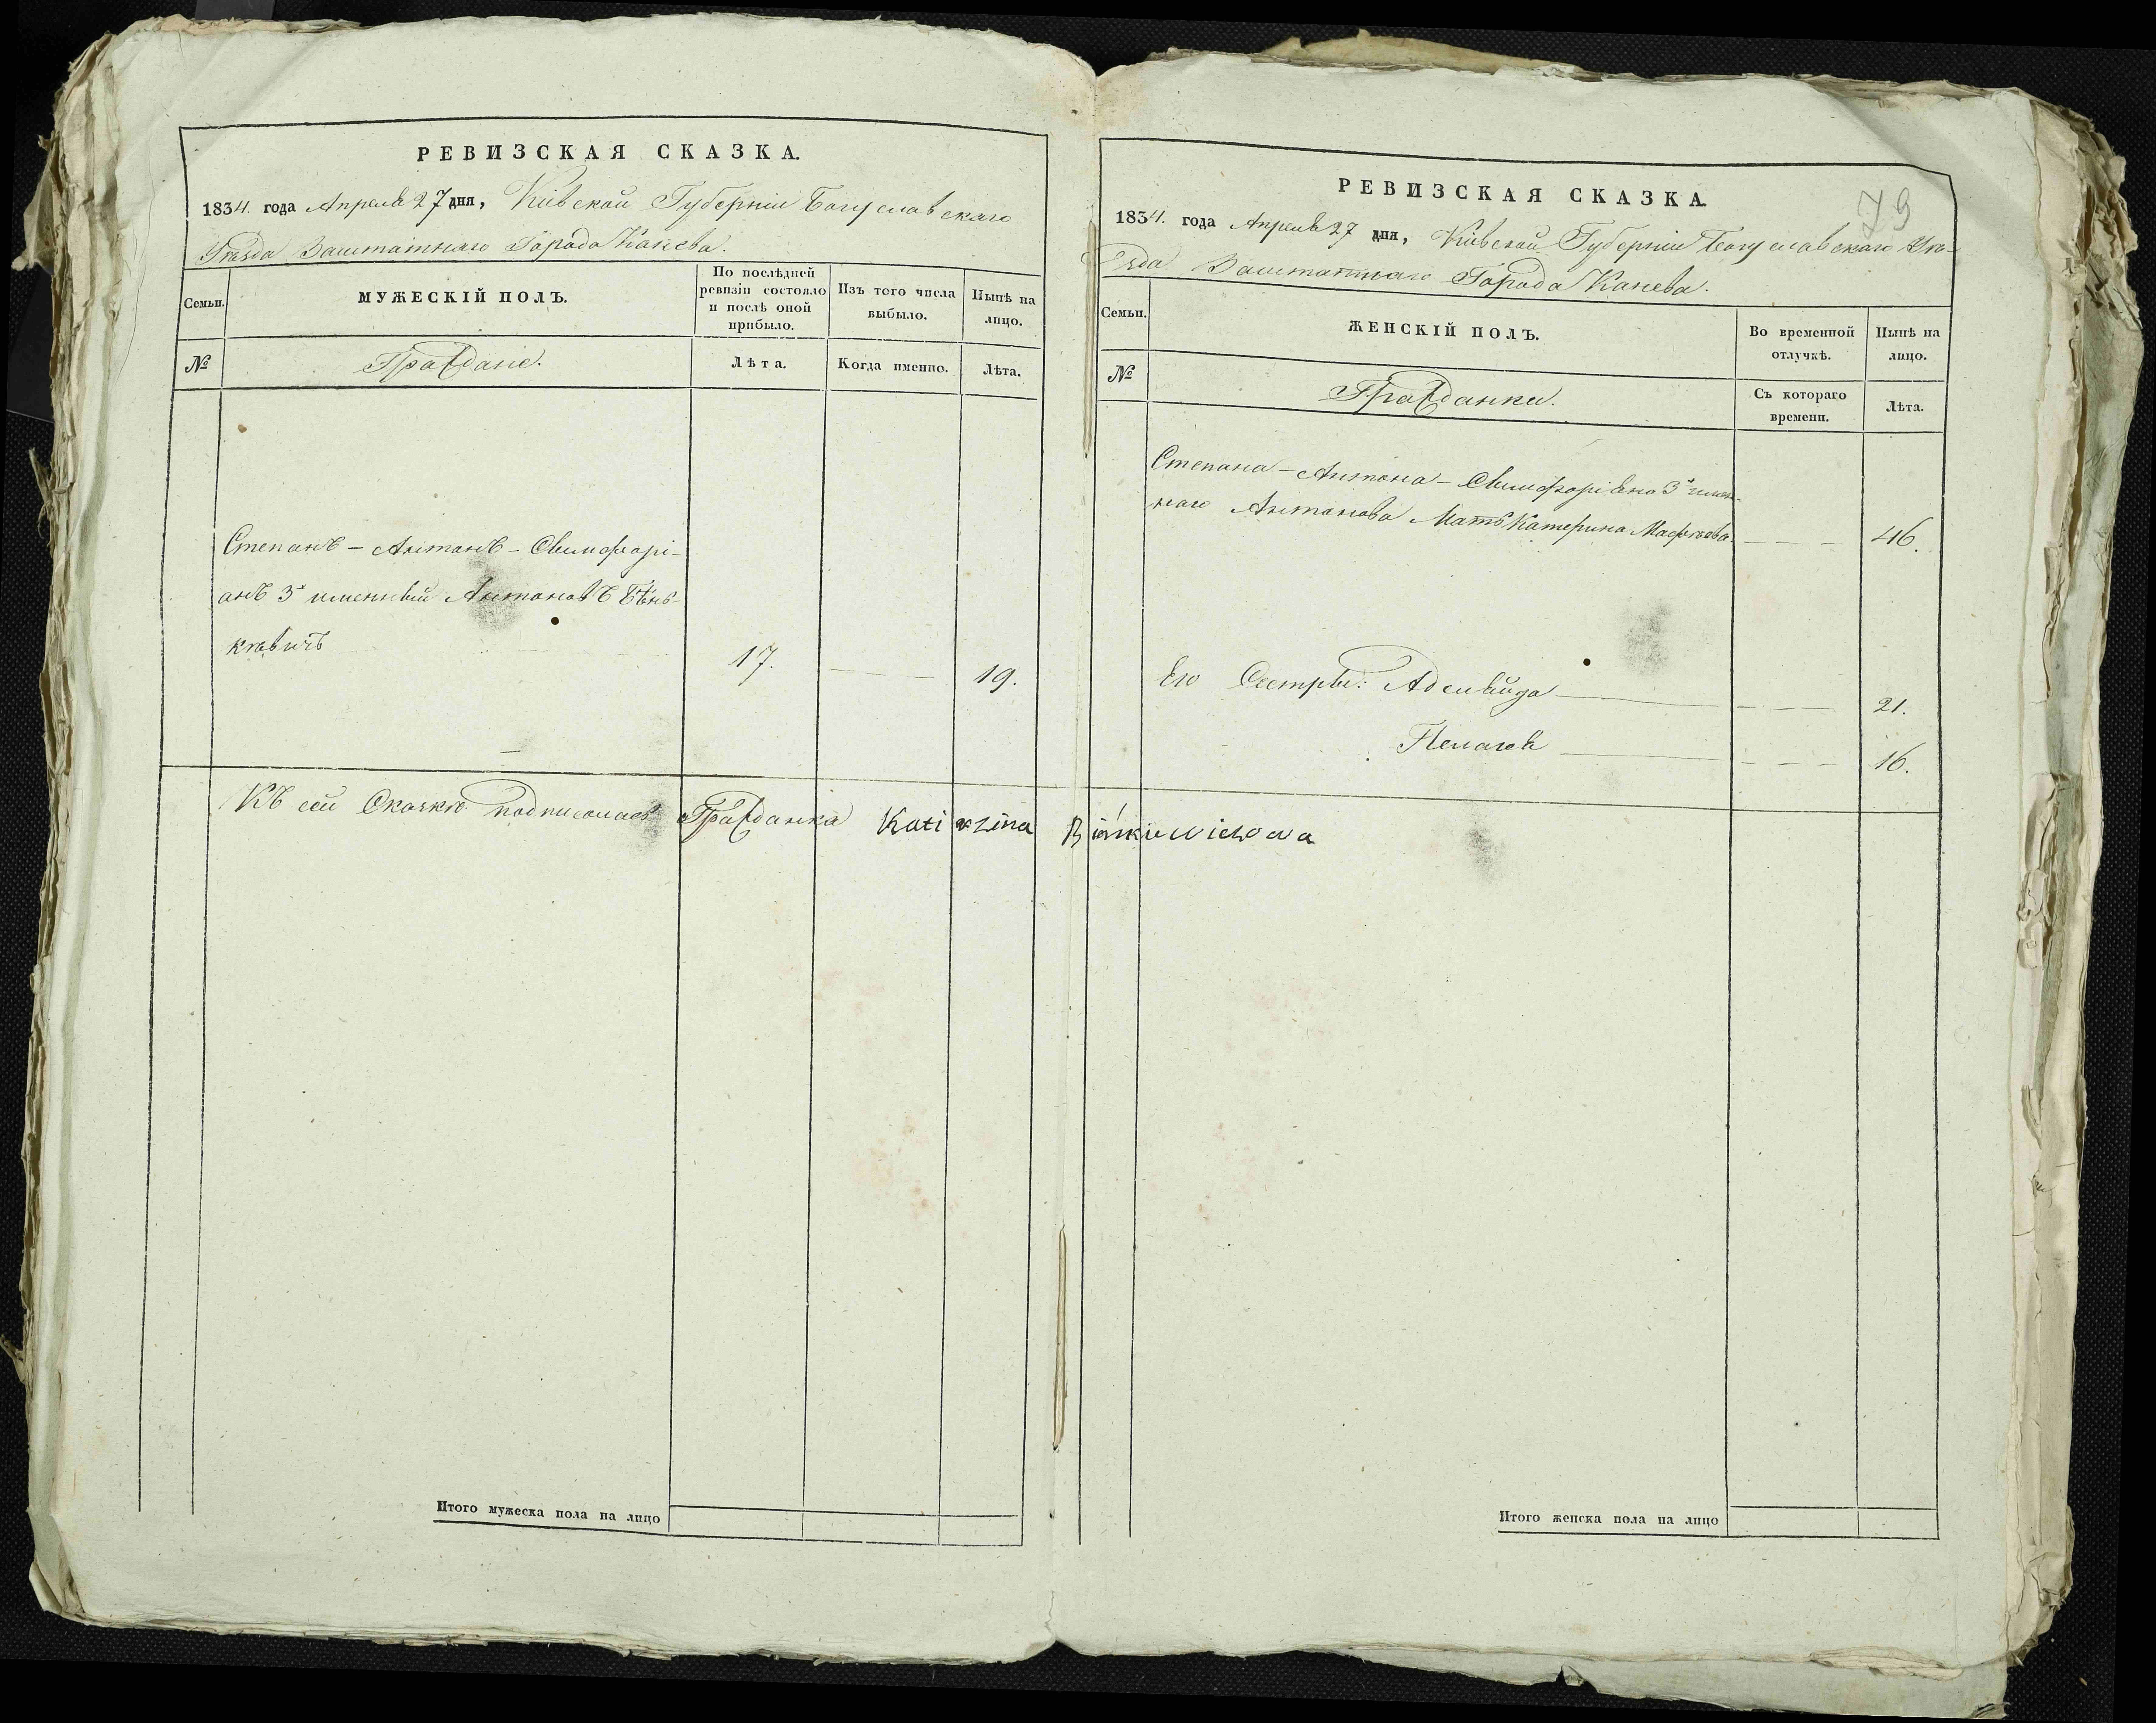 РЕВИЗСКАЯ СКАЗКА.
1834. года Апреля 27 дня, Кіевской Губерніи Богуславскаго
Уѣзда Заштатнаго Города Канева.
Семьи.
МУЖЕСКІЙ ПОЛЪ.
По послѣдней
ревизіи состояло
и послѣ оной
прибыло.
Изъ того числа
выбыло.
Нынѣ на
лицо.
№
Граждане.
Лѣта.
Когда именно.
Лѣта.
Степанъ - Антонъ - Симфорі-
анъ 3х именный Антоновъ Бѣнь-
кѣвичъ
17.
19.
Къ сей Сказкѣ подписалась Гражданка Katirzina Bińkiewiczowa
Итого мужеска пола на лицо
79
РЕВИЗСКАЯ СКАЗКА.
1834. года Апреля 27 дня, Кіевской Губерніи Богуславскаго Уѣ-
зда Заштатнаго Города Канева.
Семьи.
ЖЕНСКІЙ ПОЛЪ.
Во временной
отлучкѣ.
Нынѣ на
лицо.
№
Гражданки.
Съ котораго
времени.
Лѣта.
Степана - Антона - Симфоріана 3х имен-
наго Антонова Мать Катерина Мафѣева
46.
Его Сестры: Аделяйда
21.
Пелагея
16.
Итого женска пола на лицо